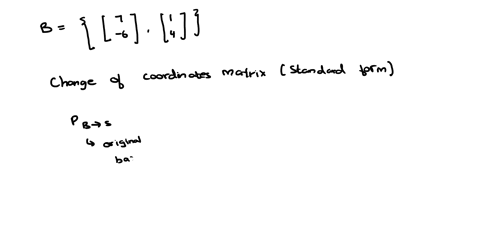 B = { [ 7 -6 ] , [ 1 4 ] }
Change of coordinates matrix (Standard form)
P B→s
↳ original
ba